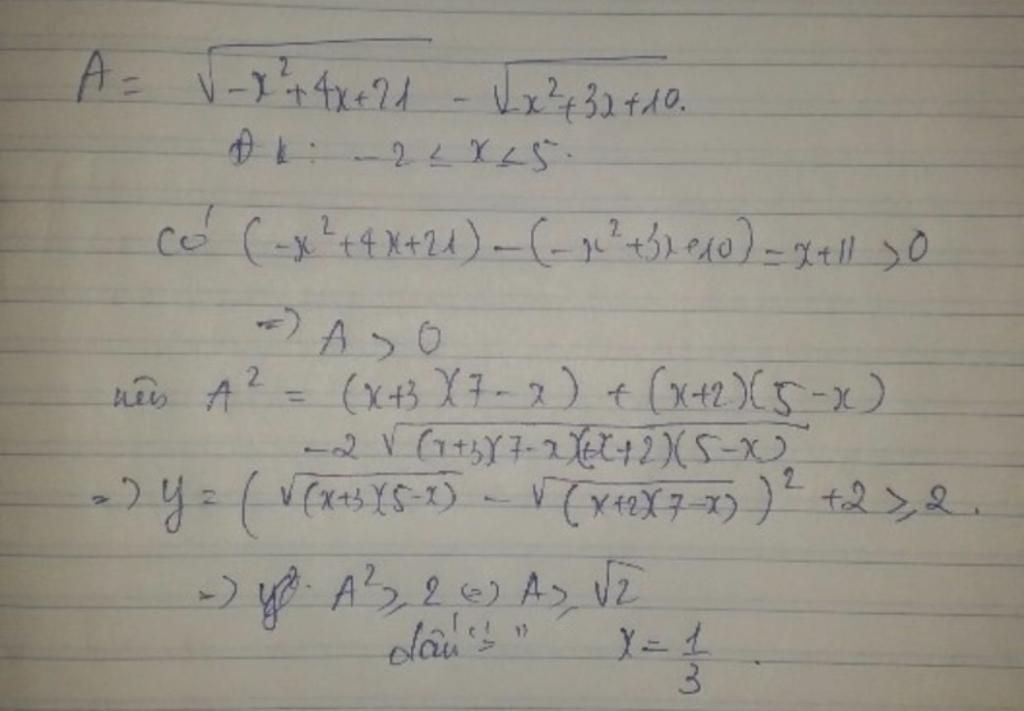 A = √(-x²+4x+21) - √(x²+3x+10).
Đk: -2 ≤ x ≤ 5.
có (-x²+4x+21)-(-x²+3x+10)=x+11 >0
=> A > 0
nên A² = (x+3)(7-x) + (x+2)(5-x)
-2 √((x+3)(7-x)(x+2)(5-x))
=> y = (√((x+3)(5-x)) - √((x+2)(7-x)))² +2 ≥ 2.
=> A² ≥ 2 <=> A ≥ √2
dấu "=" x = 1/3.